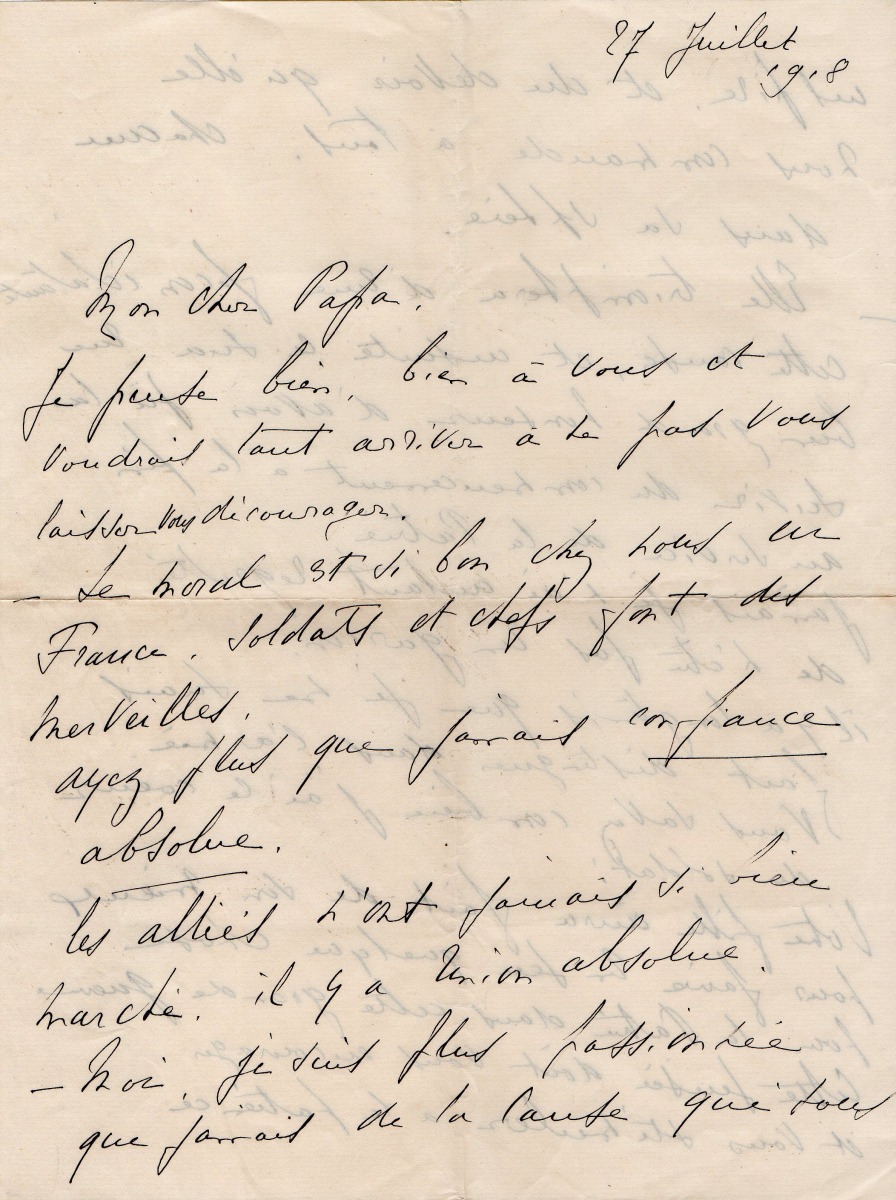 27 Juillet
1918
Mon cher Papa,
Je pense bien, bien à vous et
voudrais tant arriver à ne pas vous
laisser vous décourager.
- Le moral est si bon chez nous en
France. Soldats et chefs font des
merveilles.
ayez plus que jamais confiance
absolue.
les alliés n'ont jamais si bien
marché. il y a union absolue.
- Moi, je suis plus passionnée
que jamais de la cause que nous